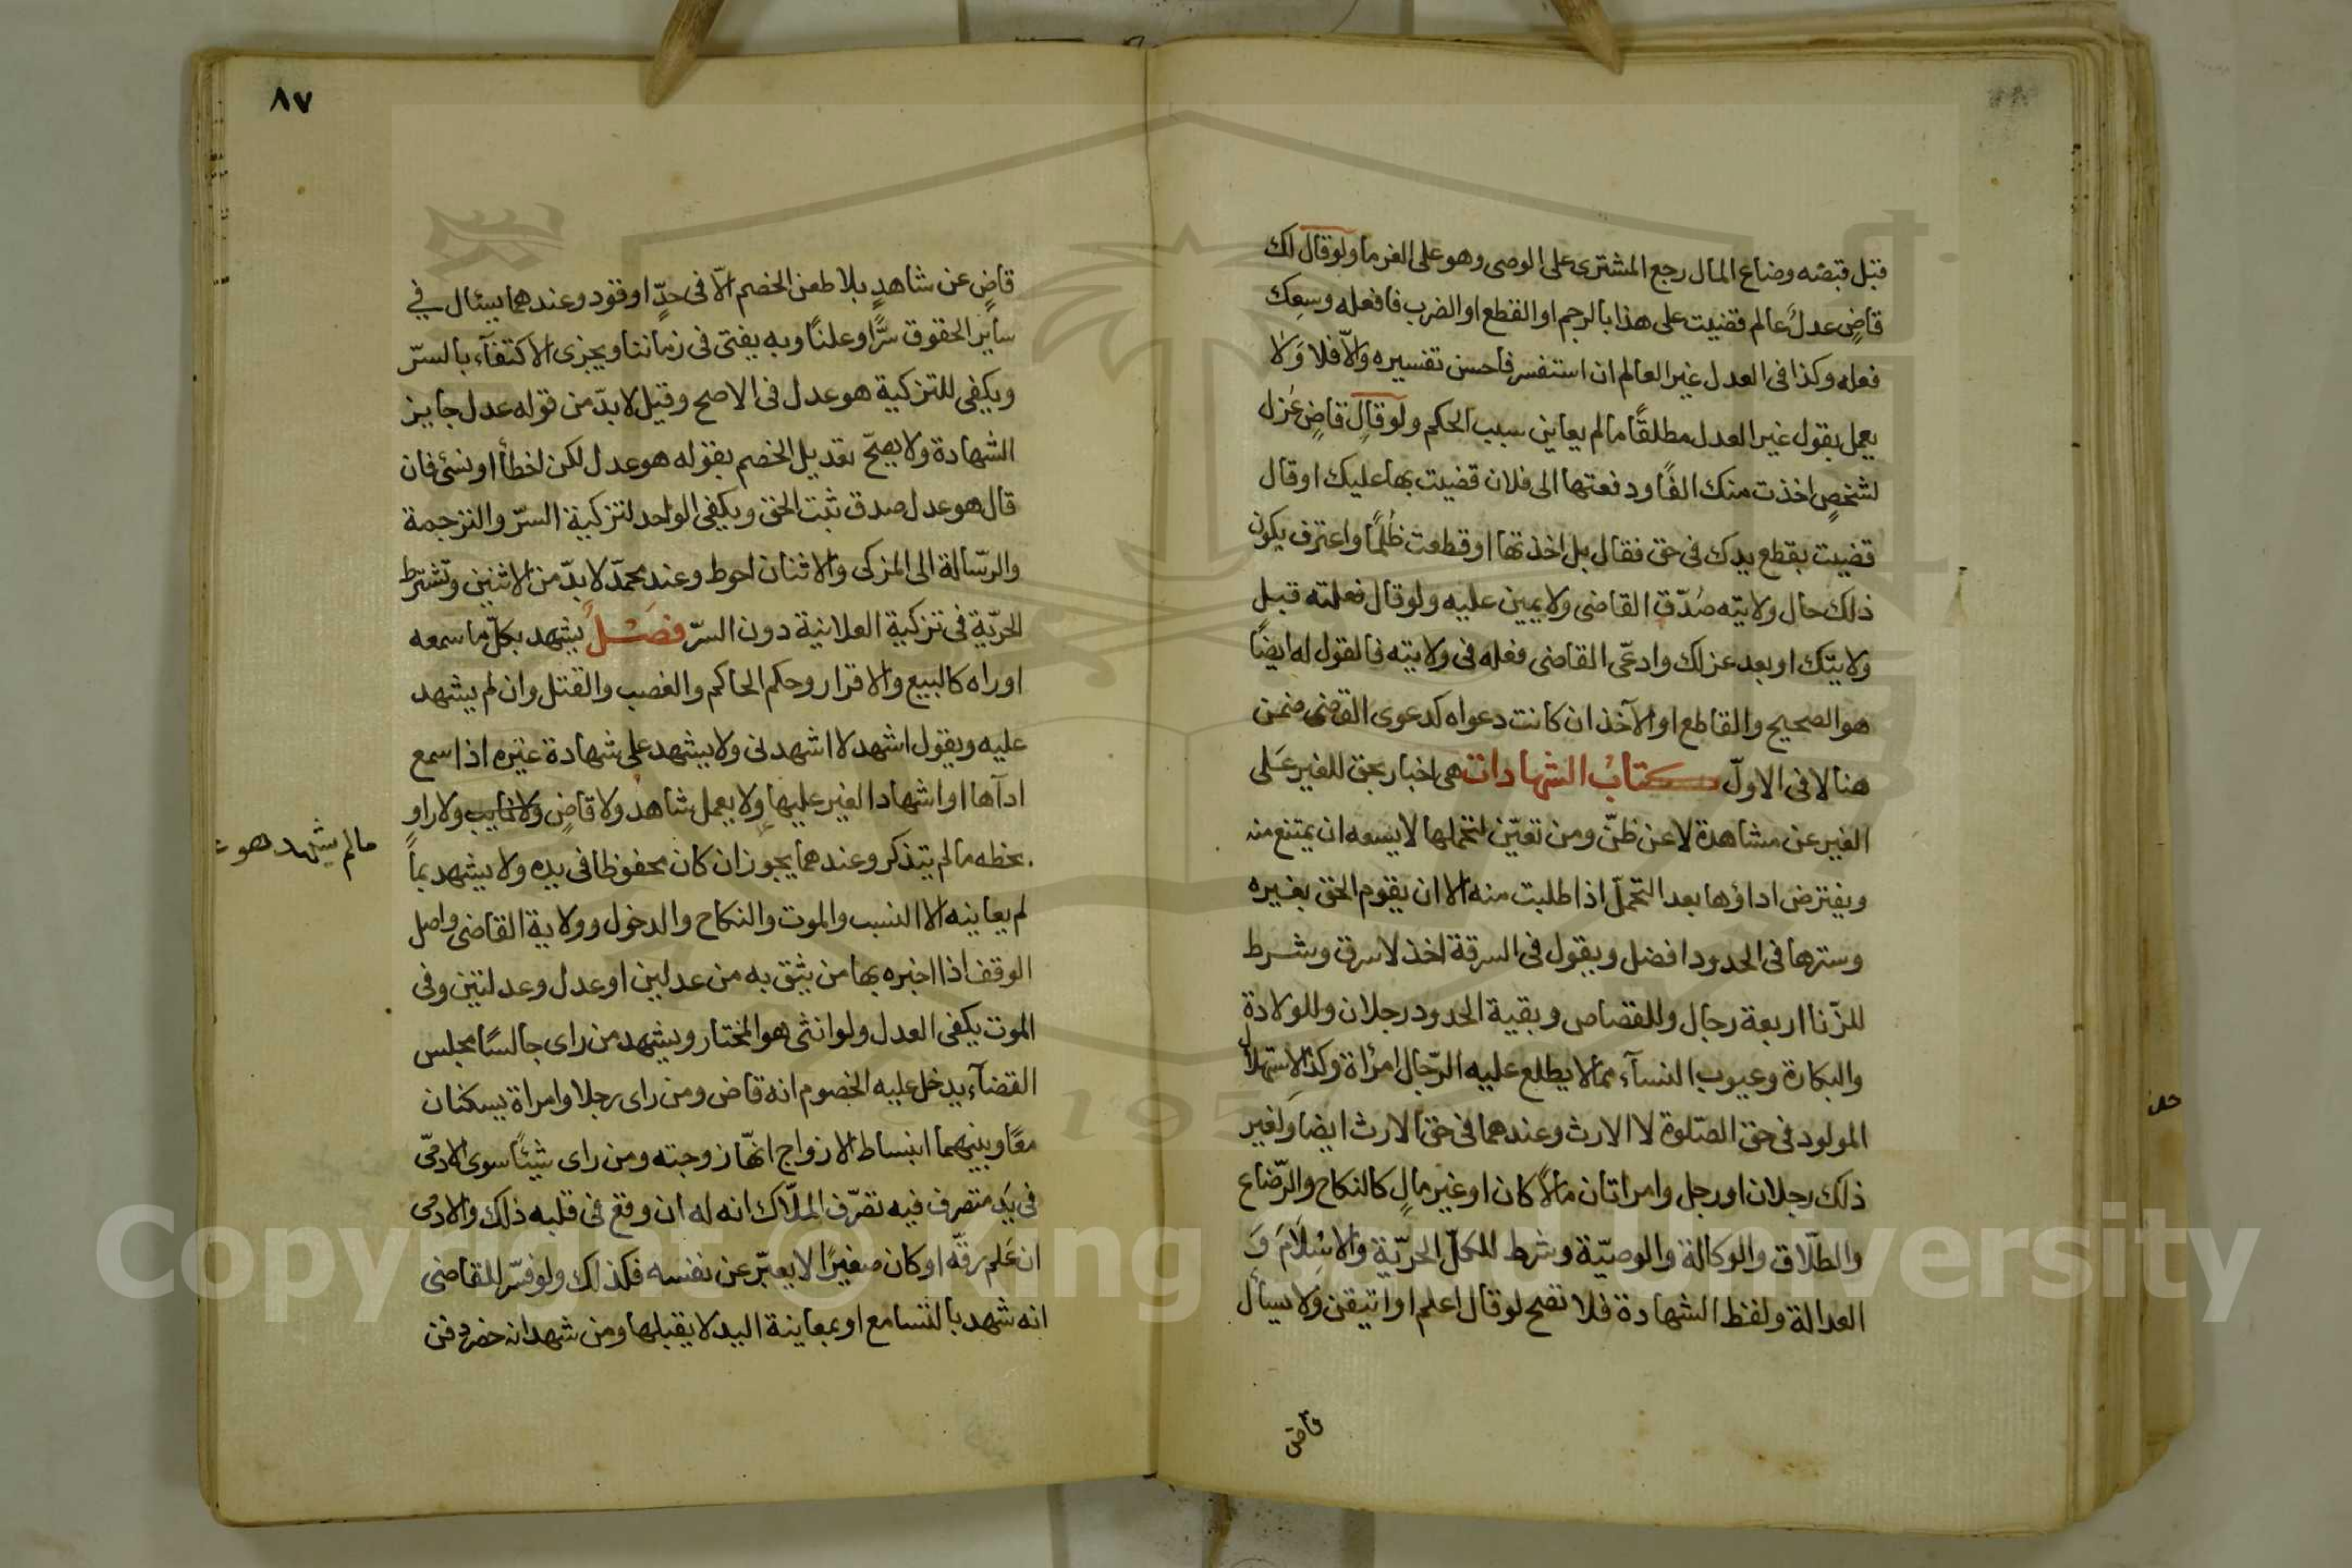 قبل قبضه وضاع المال رجع المشترى على الوصى وهو على الغرما ولو قال لك
قاضٍ عدلٌ عالم قضيت على هذا بالرجم او القطع او الضرب فافعله وسِعك
فعله وكذا فى العدل غير العالم ان استفسر فاحسن تفسيره والّا فلا وَلا
يعمل بقول غير العدل مطلقًا ما لم يعاين سبب الحكم ولو قال قاضٍ عُزل
لشخصٍ اخذت منك الفًا ودفعتها الى فلان قضيت بها عليك او قال
قضيت بقطع يدك فى حق فقال بل اخذتها او قطعت ظلمًا واعترف بكون
ذلك حال ولايتّه صُدّق القاضى ولا يمين عليه ولو قال فعلته قبل
ولايتّك او بعد عزلك وادعّى القاضى فعله فى ولايته فالقول له ايضًا
هو الصحيح والقاطع او الآخذ ان كانت دعواه كدعوى القاضى ضمن
هنا لا فى الاولّ كتابُ الشهادات هى اخبار بحق للغير عَلى
الغير عن مشاهدة لا عن ظنّ ومن تعيّن لتحملها لا يسعه ان يمتنع منه
ويفترض اداؤها بعد التحملّ اذا طلبت منه الا ان يقوم الحق بغيره
وسترها فى الحدود افضل ويقول فى السرقة اخذ لا سرق وشرط
للزّنا اربعة رجال وللقصاص وبقية الحدود رجلان وللولادة
والبكارة وعيوب النسآء مما لا يطلع عليه الرّجال امرأة وكذا لاستهلال
المولود فى حق الصّلوة لا الارث وعندهما فى حق الارث ايضا ولغير
ذلك رجلان او رجل وامراتان مالًا كان او غير مالٍ كالنكاح والرّضاع
والطلّاق والوكالة والوصيّة وشرط للكلّ الحريّة والاسْلَامَ وَ
العدالة ولفظ الشهادة فلا تصح لو قال اعلم او اتيقن ولا يسأل
قاض
٨٧
قاضٍ عن شاهدٍ بلا طعن الخصم الّا فى حدٍّ او قود وعندهما يسئال في
ساير الحقوق سرًّا وعلنًا وبه يفتى فى زماننا ويجزى الاكتفآء بالسرّ
ويكفى للتزكية هو عدل فى الاصح وقيل لا بدّ من قوله عدل جايز
الشهادة ولا يصحّ تعديل الخصم بقوله هو عدل لكن اخطأ او نسى فان
قال هو عدل صدق ثبت الحق ويكفى الواحد لتزكية السرّ والترجمة
والرّسالة الى المزكى والاثنان احوط وعند محمدّ لا بدّ من الاثنين وتشترط
الحريّة فى تزكية العلانية دون السرّ فصَـلٌ يشهد بكلّ ما سمعه
او راه كالبيع والاقرار وحكم الحاكم والغصب والقتل وان لم يشهد
عليه ويقول اشهد لا اشهدنى ولا يشهد على شهادة غيره اذا سمع
ادآها او اشهاد الغير عليها ولا يعمل شاهد ولا قاضٍ ولا نايب ولا راوٍ
بخطه ما لم يتذكر وعندهما يجوز ان كان محفوظا فى يده ولا يشهد بماً
لم يعاينه الا النسب والموت والنكاح والدخول وولاية القاضى واصل
الوقف اذا اخبره بها من يثق به من عدلين او عدل وعدلتين وفى
الموت يكفى العدل ولو انثى هو المختار ويشهد من راى جالسًا مجلس
القضآء يدخل عليه الخصوم انه قاض ومن راى رجلا وامراة يسكنان
معًا وبينهما انبساط الازواج انهّا زوجته ومن راى شيئًا سوى الادمّى
فى يَدِ متصرف فيه تصرّف الملّاك انه له ان وقع فى قلبه ذلك والادمى
ان عَلم رقّه او كان صغيرًا لا يعبّر عن نفسه فكذلك ولو فسّر للقاضى
انه شهد بالتسامع او بمعاينة اليد لا يقبلها ومن شهد انه حضر دفن
مالم يشهد هو
Copyright © King Saud University
1957